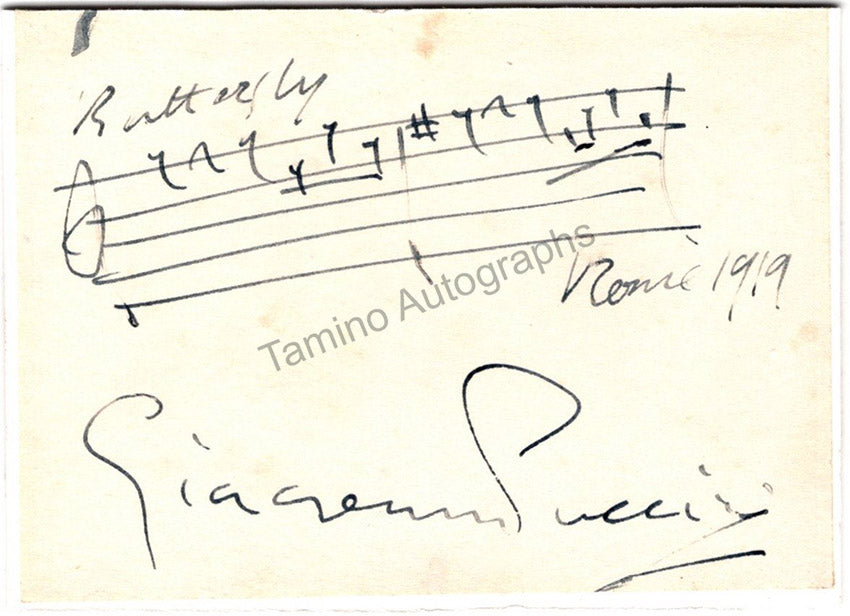 Butterfly
Rome 1919
Tamino Autographs
Giacomo Puccini